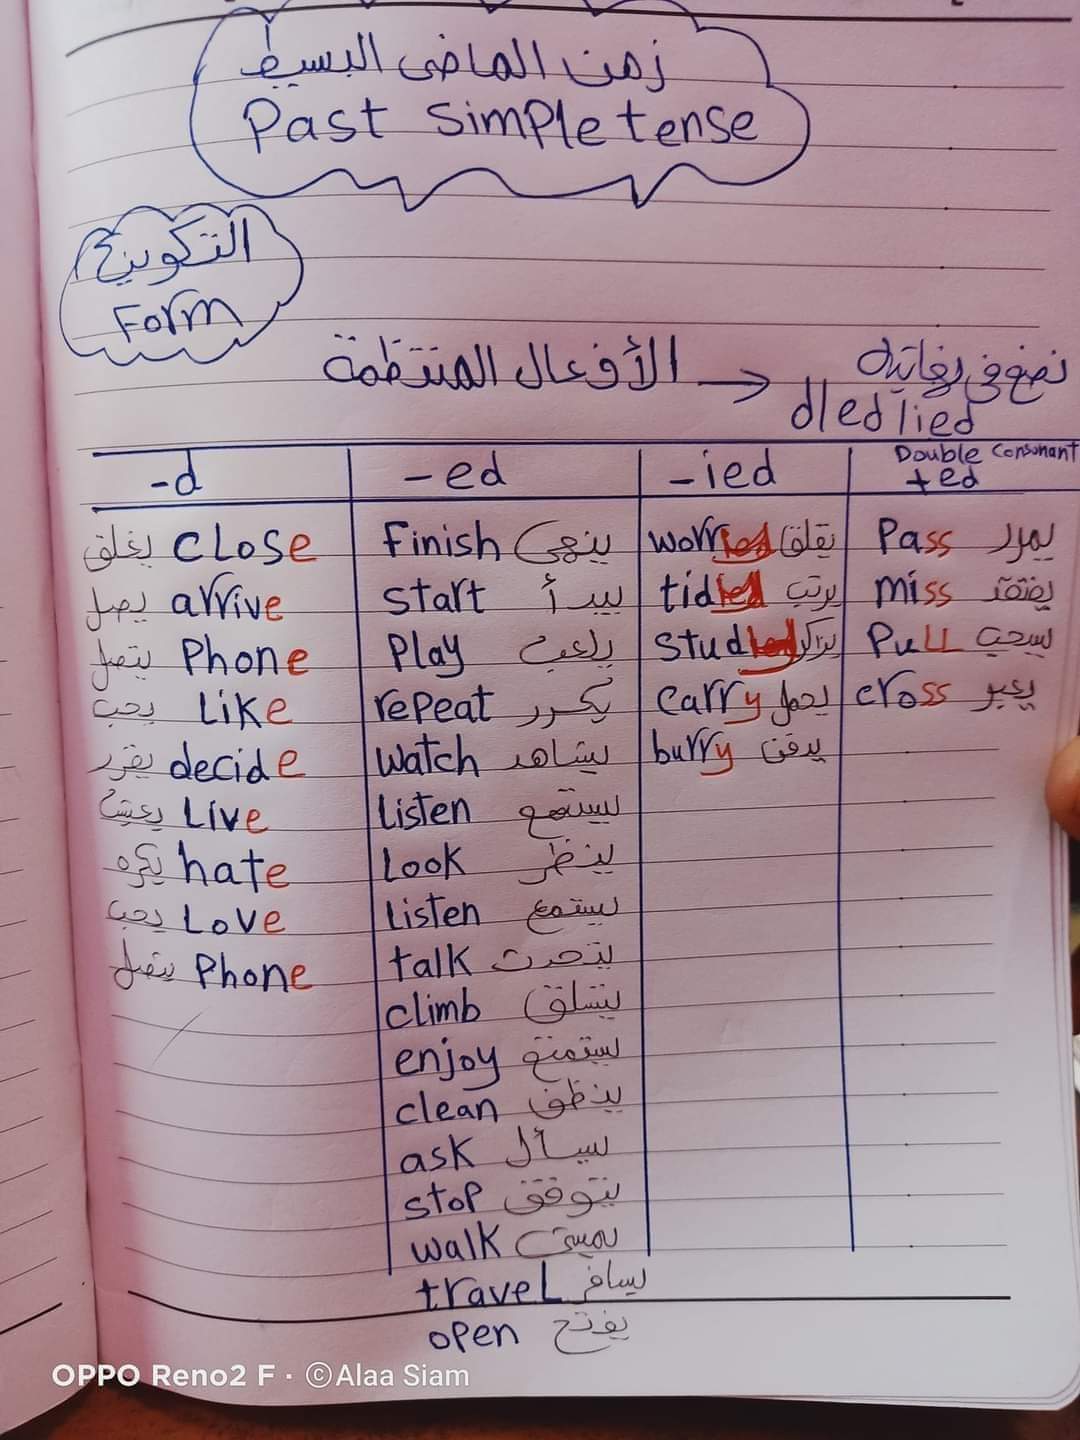 زمن الماضى البسيط
Past Simple tense
التكوين
Form
الأفعال المنتظمة → نضع فى نهايته
d/ed/ied
-d -ed -ied Double Consonant +ed
يغلق Close Finish ينهى worried يقلق Pass يمرر
يصل arrive start يبدأ tidied يرتب miss يفتقد
يتصل Phone Play يلعب studied يذاكر Pull يسحب
يحب Like repeat يكرر carry يحمل cross يعبر
يقرر decide watch يشاهد burry يدفن
يعيش Live Listen يستمع
يكره hate Look ينظر
يحب Love Listen يستمع
يتصل Phone talk يتحدث
climb يتسلق
enjoy يستمتع
clean ينظف
ask يسأل
stop يتوقف
walk يمشى
travel يسافر
open يفتح
OPPO Reno2 F · ©Alaa Siam